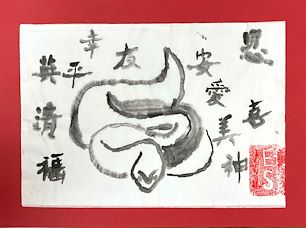 幸
友
安
恩
英
平
愛
清
美
喜
福
神
ES